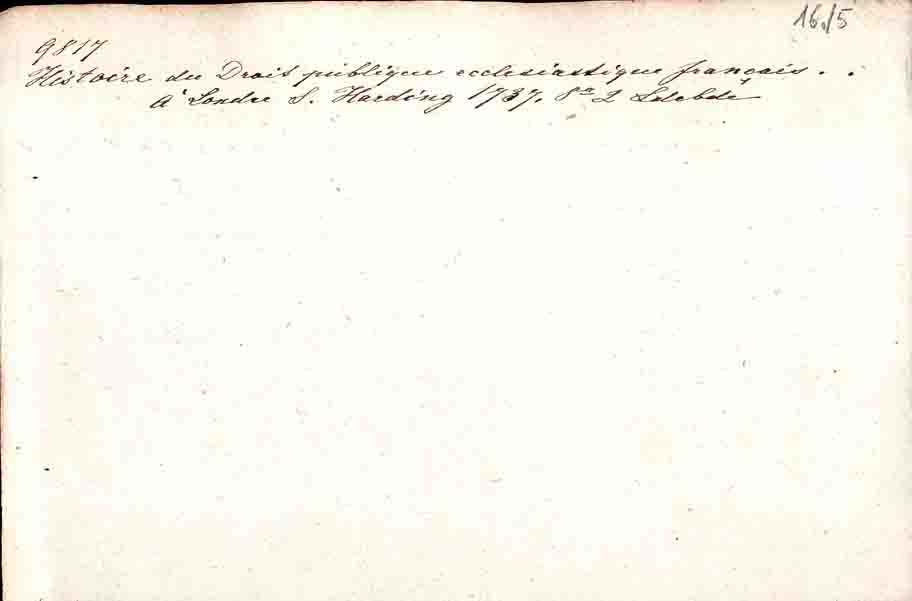 16./5
9817
Histoire du Droit publique ecclesiastique français . .
à Londre S. Harding 1737. 8° 2